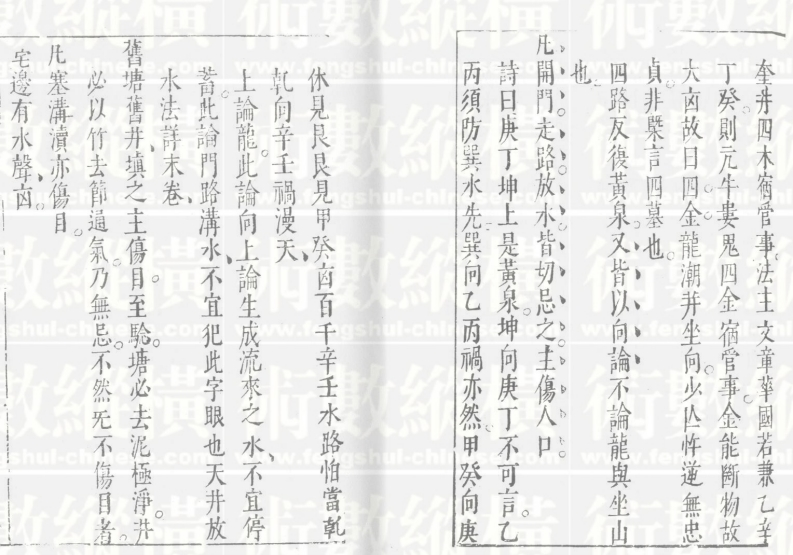 奎井四木宿管事法主文章華國若兼乙辛
丁癸則亢牛婁鬼四金宿管事金能斷物故
大凶故曰四金龍潮并坐向少亾忤逆無忠
貞非槩言四墓也
四路反復黃泉又皆以向論不論龍與坐山
也
凡開門走路放水皆切忌之主傷人口
詩曰庚丁坤上是黃泉坤向庚丁不可言乙
丙須防巽水先巽向乙丙禍亦然甲癸向庚
休見艮艮見甲癸凶百千辛壬水路怕當乹
乹向辛壬禍漫天
上論龍此論向上論生成流來之水不宜停
蓄此論門路溝水不宜犯此字眼也天井放
水法詳末卷
舊塘舊井塡之主傷目至騐塘必去泥極淨井
必以竹去節通氣乃無忌不然旡不傷目者
凡塞溝瀆亦傷目
宅邊有水聲凶
術數縱橫
www.fengshui-chinese.com